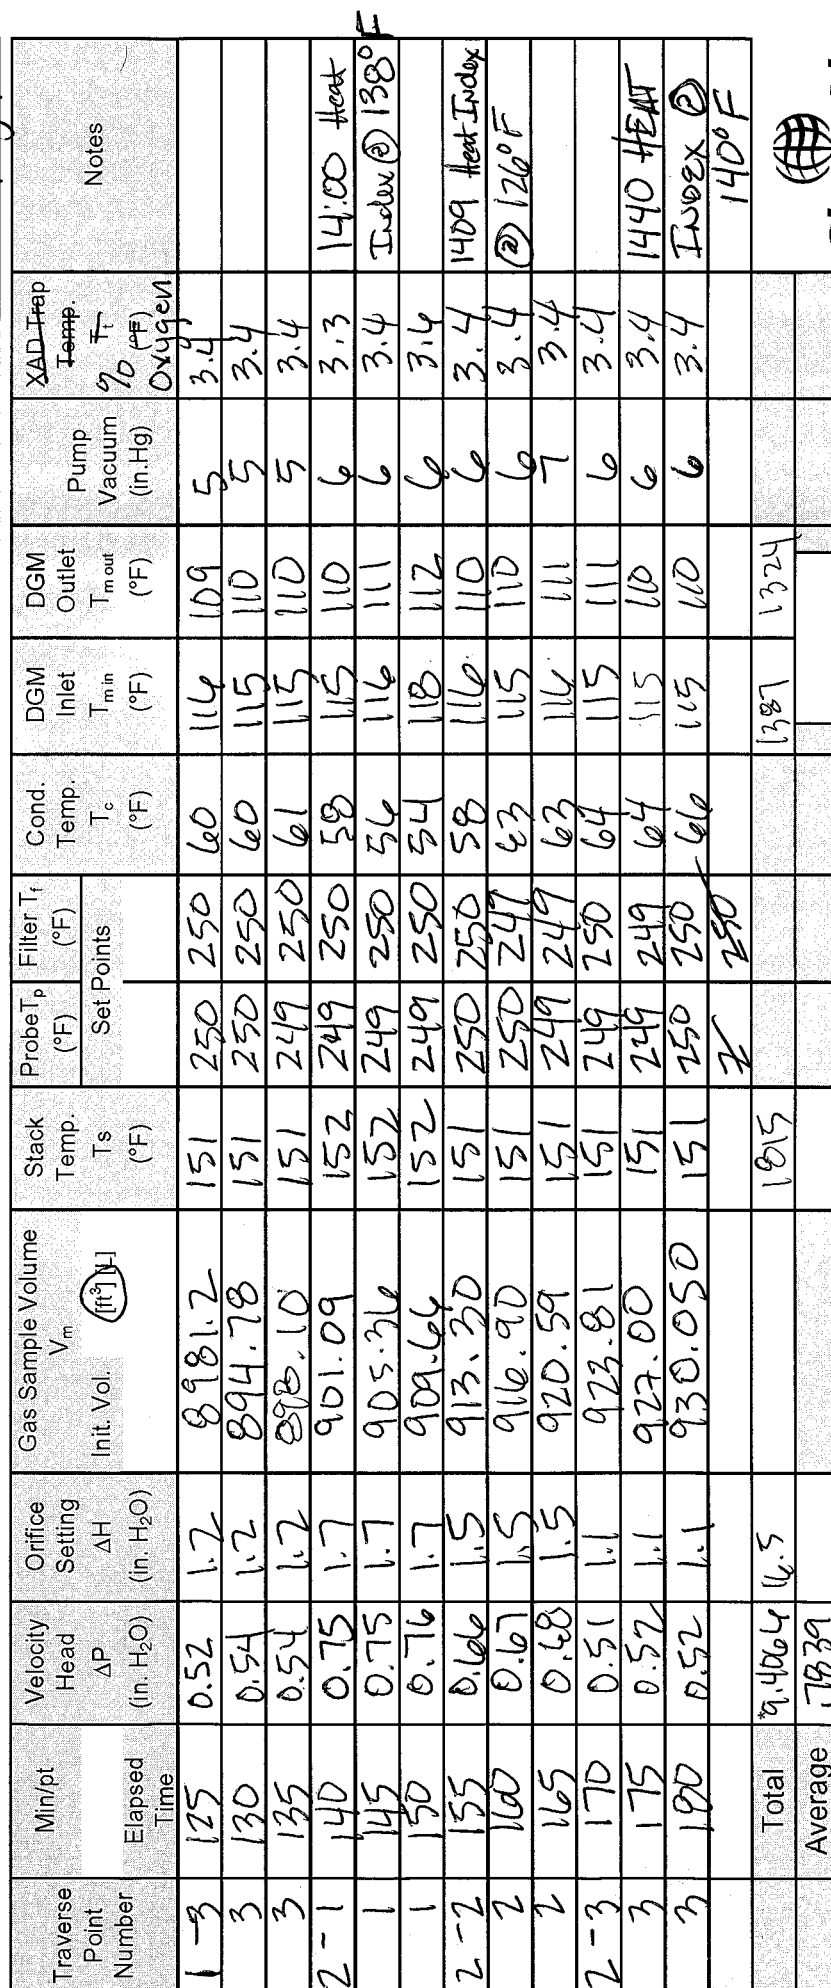 Traverse Point Number | Min/pt Elapsed Time | Velocity Head ΔP (in. H₂O) | Orifice Setting ΔH (in. H₂O) | Gas Sample Volume Vm Init. Vol. [ft³] [L] | Stack Temp. Ts (°F) | Probe Tp (°F) Set Points | Filter Tf (°F) Set Points | Cond. Temp. Tc (°F) | DGM Inlet Tm in (°F) | DGM Outlet Tm out (°F) | Pump Vacuum (in.Hg) | XAD Trap Temp. Tt (°F) % Oxygen | Notes
1-3 | 125 | 0.52 | 1.2 | 8981.2 | 151 | 250 | 250 | 60 | 116 | 109 | 5 | 3.4 |
3 | 130 | 0.54 | 1.2 | 894.78 | 151 | 250 | 250 | 60 | 115 | 110 | 5 | 3.4 |
3 | 135 | 0.54 | 1.2 | 898.10 | 151 | 249 | 250 | 61 | 115 | 110 | 5 | 3.4 |
2-1 | 140 | 0.75 | 1.7 | 901.09 | 152 | 249 | 250 | 58 | 115 | 110 | 6 | 3.3 | 14:00 Heat
1 | 145 | 0.75 | 1.7 | 905.36 | 152 | 249 | 250 | 56 | 116 | 111 | 6 | 3.4 | Index @ 138°F
1 | 150 | 0.76 | 1.7 | 909.66 | 152 | 249 | 250 | 54 | 118 | 112 | 6 | 3.6 |
2-2 | 155 | 0.66 | 1.5 | 913.30 | 151 | 250 | 250 | 58 | 116 | 110 | 6 | 3.4 | 1409 Heat Index
2 | 160 | 0.67 | 1.5 | 916.90 | 151 | 250 | 249 | 63 | 115 | 110 | 6 | 3.4 | @ 126°F
2 | 165 | 0.68 | 1.5 | 920.59 | 151 | 249 | 249 | 63 | 116 | 111 | 7 | 3.4 |
2-3 | 170 | 0.51 | 1.1 | 923.81 | 151 | 249 | 250 | 64 | 115 | 111 | 6 | 3.4 |
3 | 175 | 0.52 | 1.1 | 927.00 | 151 | 249 | 249 | 64 | 115 | 110 | 6 | 3.4 | 1440 HEAT
3 | 180 | 0.52 | 1.1 | 930.050 | 151 | 250 | 250 | 66 | 115 | 110 | 6 | 3.4 | INDEX @
250 | 140°F
Total | 9.4064 | 16.5 | 1815 | 1387 | 1324
Average | .7839